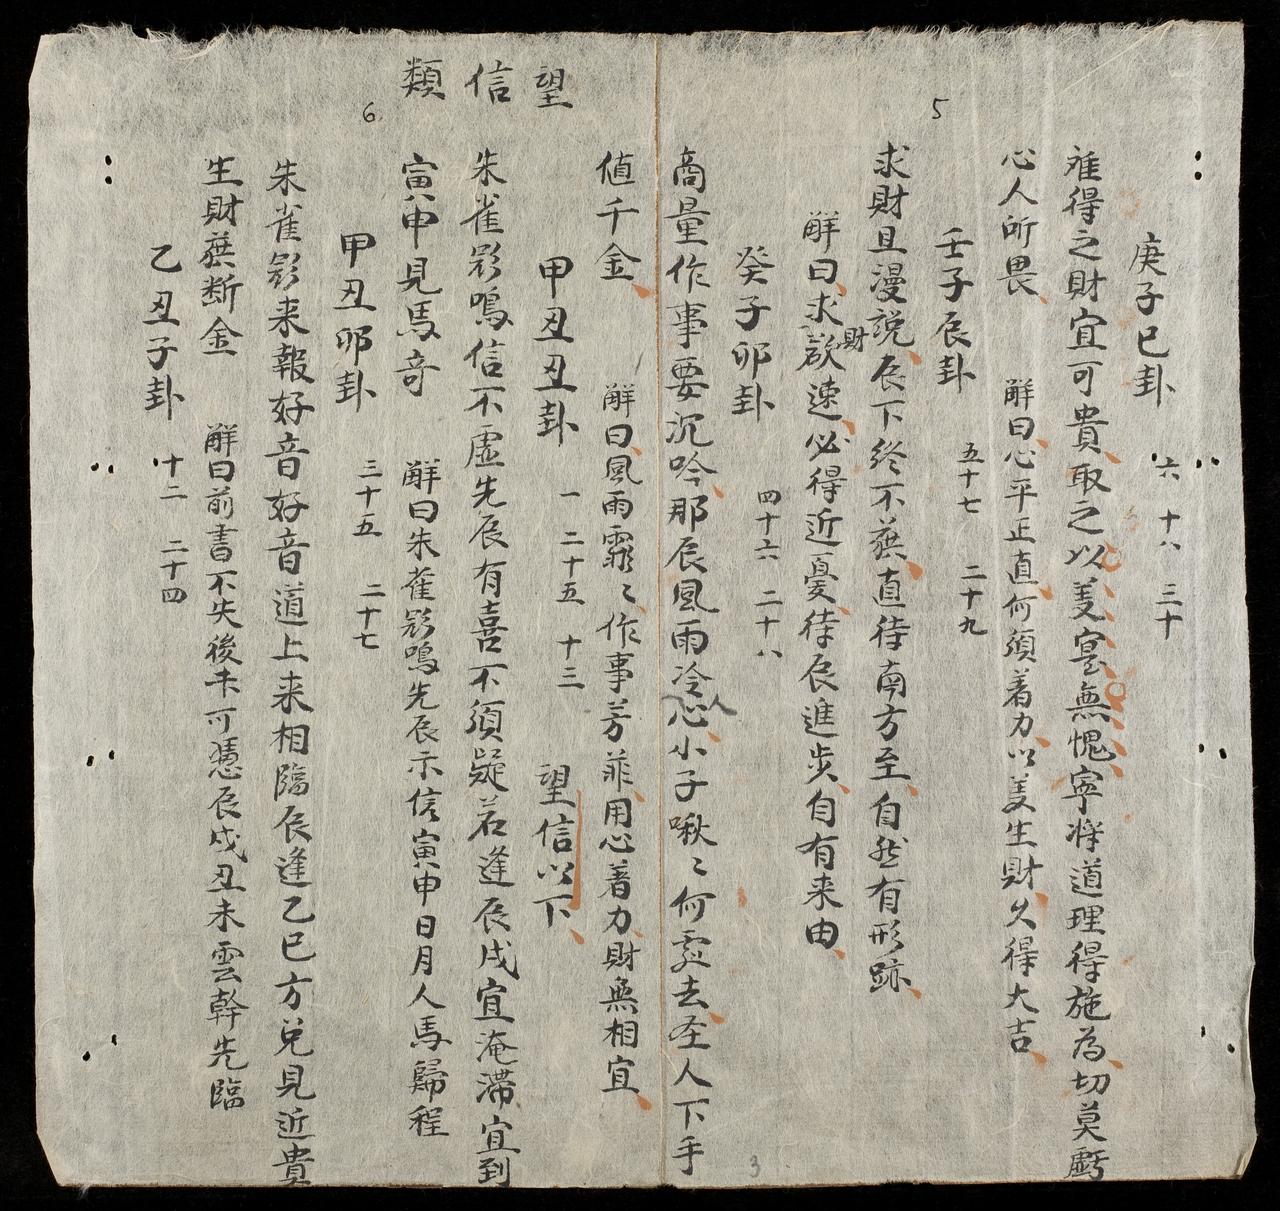 庚子巳卦 六 十八 三十
难得之財宜可貴取之以羙寔無愧寧将道理得施為切莫虧
心人所畏 觧曰心平正直何須着力以羙生財久得大吉
5
壬子辰卦 五十七 二十九
求財且漫説辰下終不蔟直待南方至自然有形跡
觧曰求財欲速必得近憂待辰進步自有来由
癸子卯卦 四十六 二十八
商量作事要沉吟那辰風雨冷人心小子啾〻何䖏去圣人下手
值千金 觧曰風雨霏〻作事芳菲用心着力財無相宜
甲丑丑卦 一 二十五 十三 望信以下
望信類
朱雀影鳴信不虛先辰有喜不須疑若逢辰戌宜淹滯宜到
寅申見馬奇 觧曰朱雀影鳴先辰示信寅申日月人馬歸程
6
甲丑卯卦 三十五 二十七
朱雀影来報好音好音道上来相臨辰逢乙巳方兑見近貴
生財蔟断金 觧曰前書不失後未可憑辰戌丑未雲幹先臨
乙丑子卦 十二 二十四
3